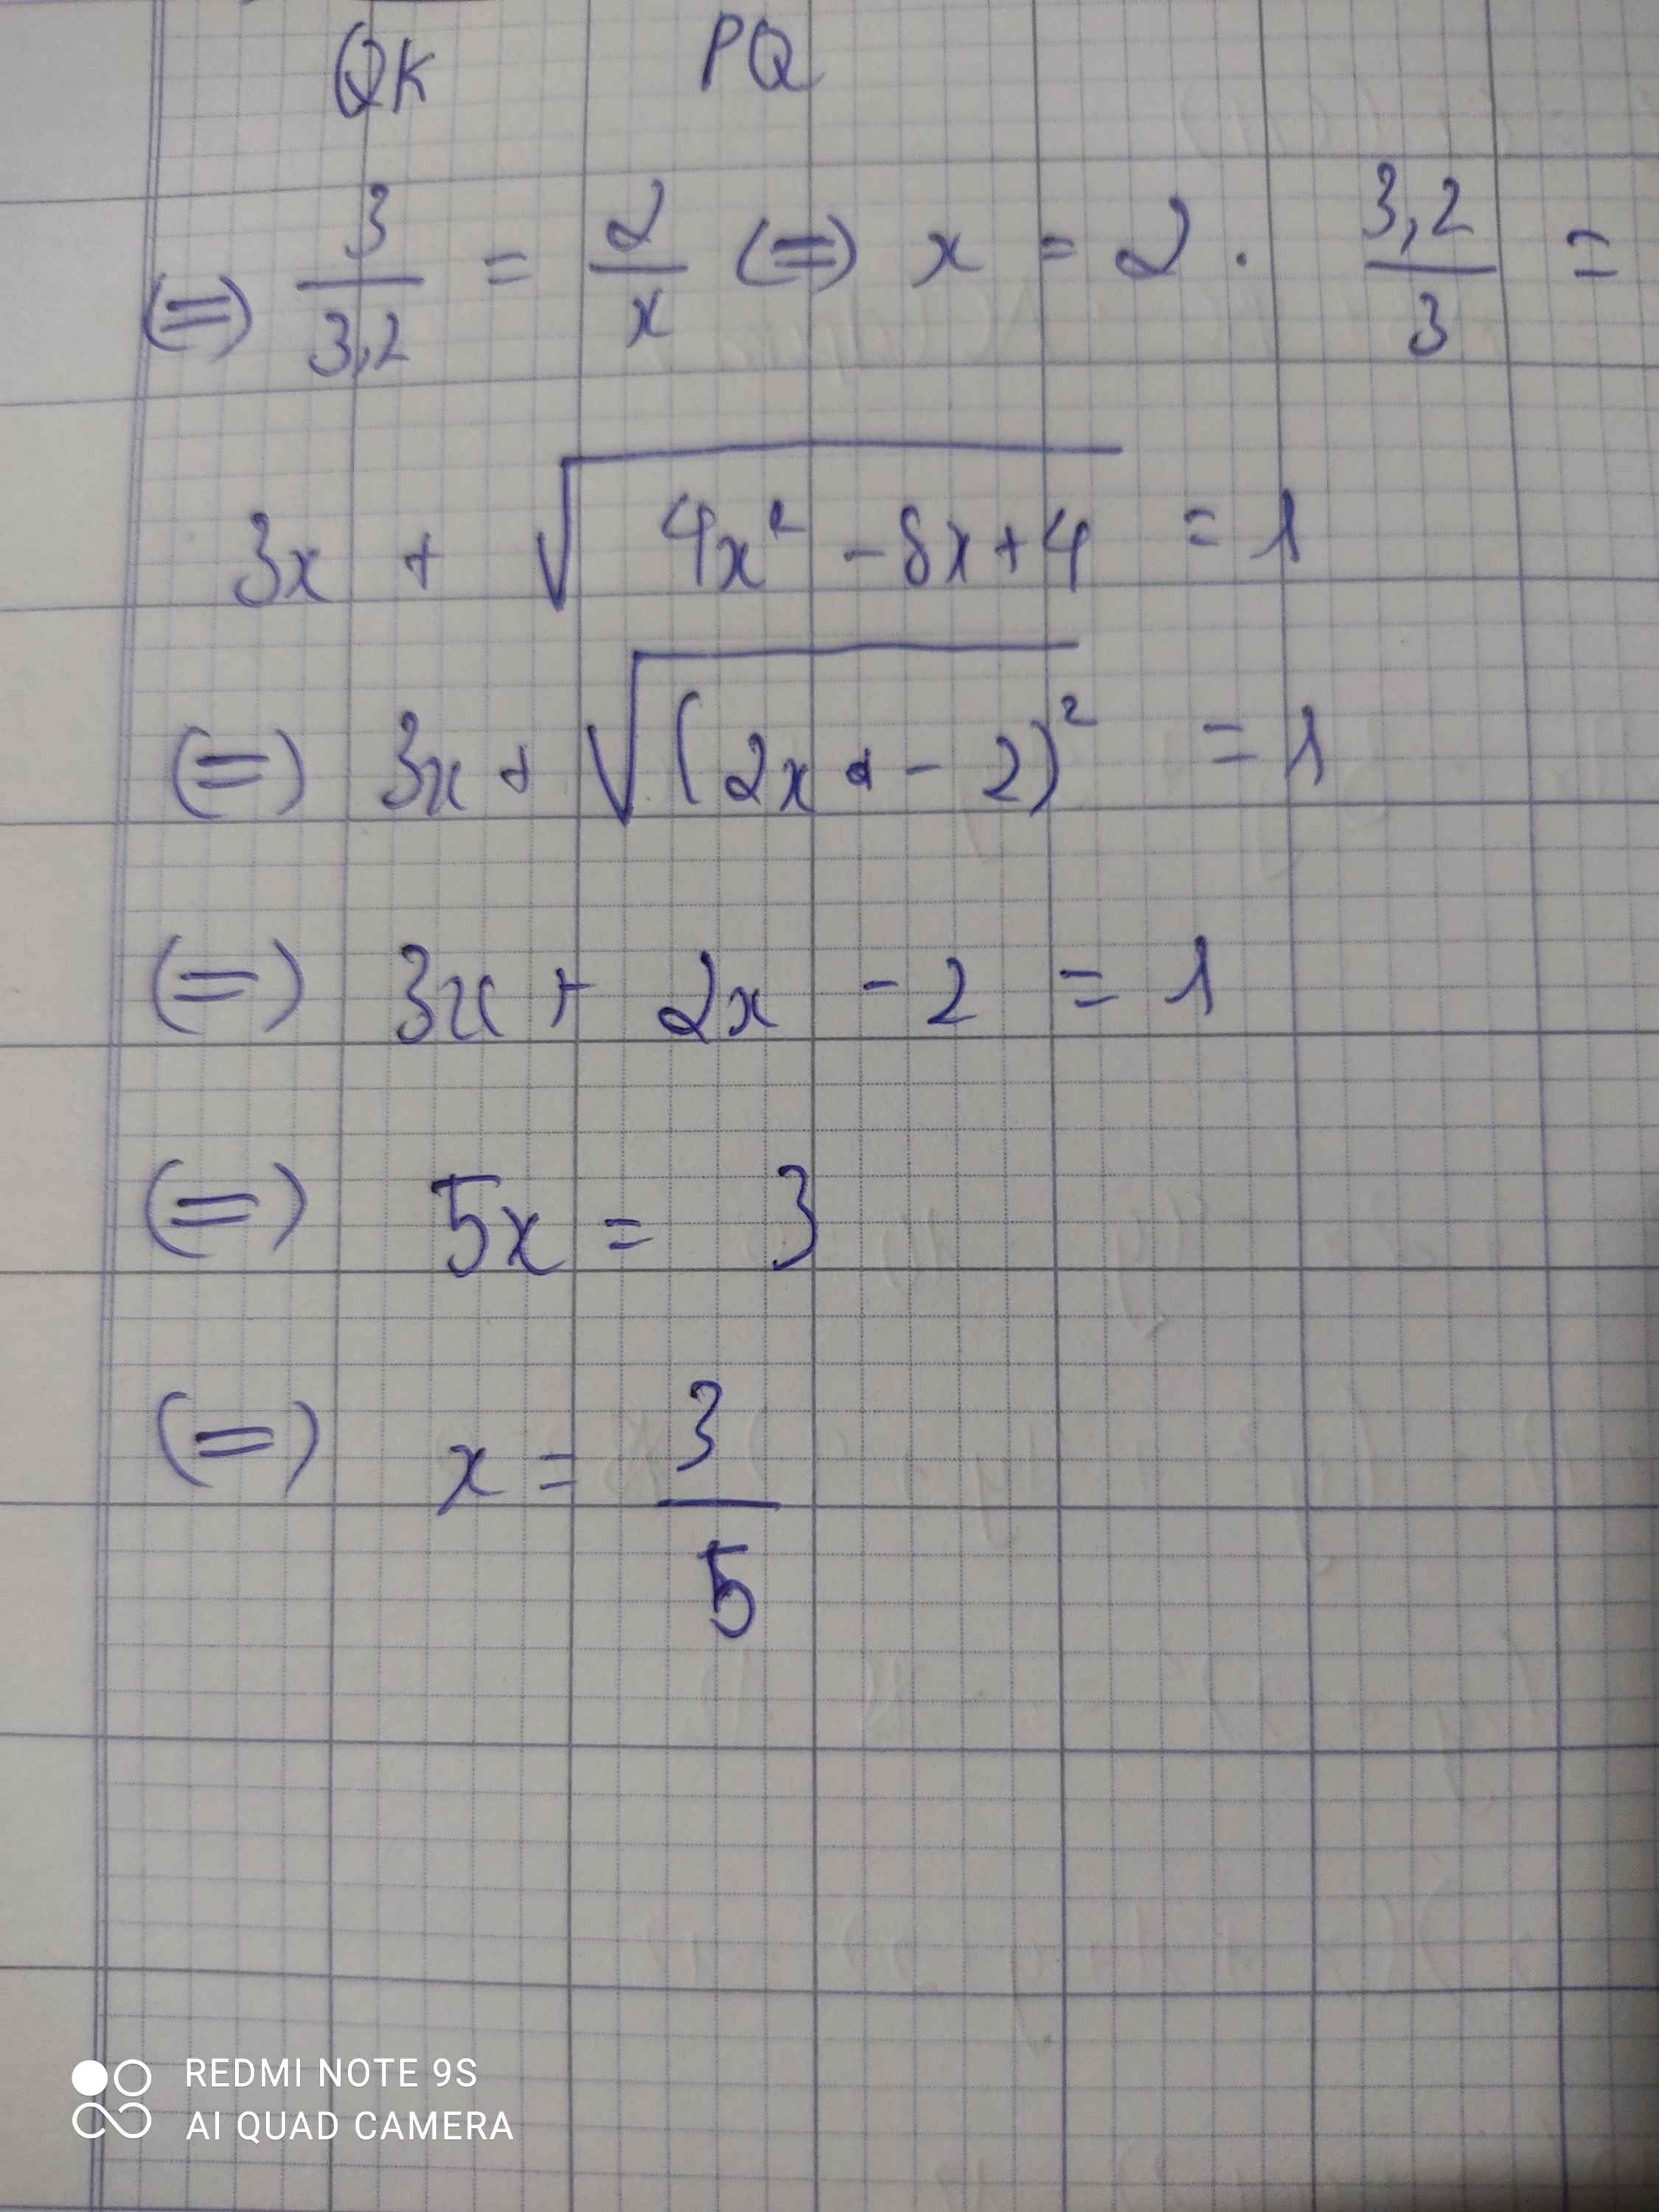 QK PQ
(=) 3/3,2 = 2/x (=) x = 2 . 3,2/3 =
3x + √(4x² - 8x + 4) = 1
(=) 3x + √(2x + - 2)² = 1
(=) 3x + 2x - 2 = 1
(=) 5x = 3
(=) x = 3/5
REDMI NOTE 9S
AI QUAD CAMERA